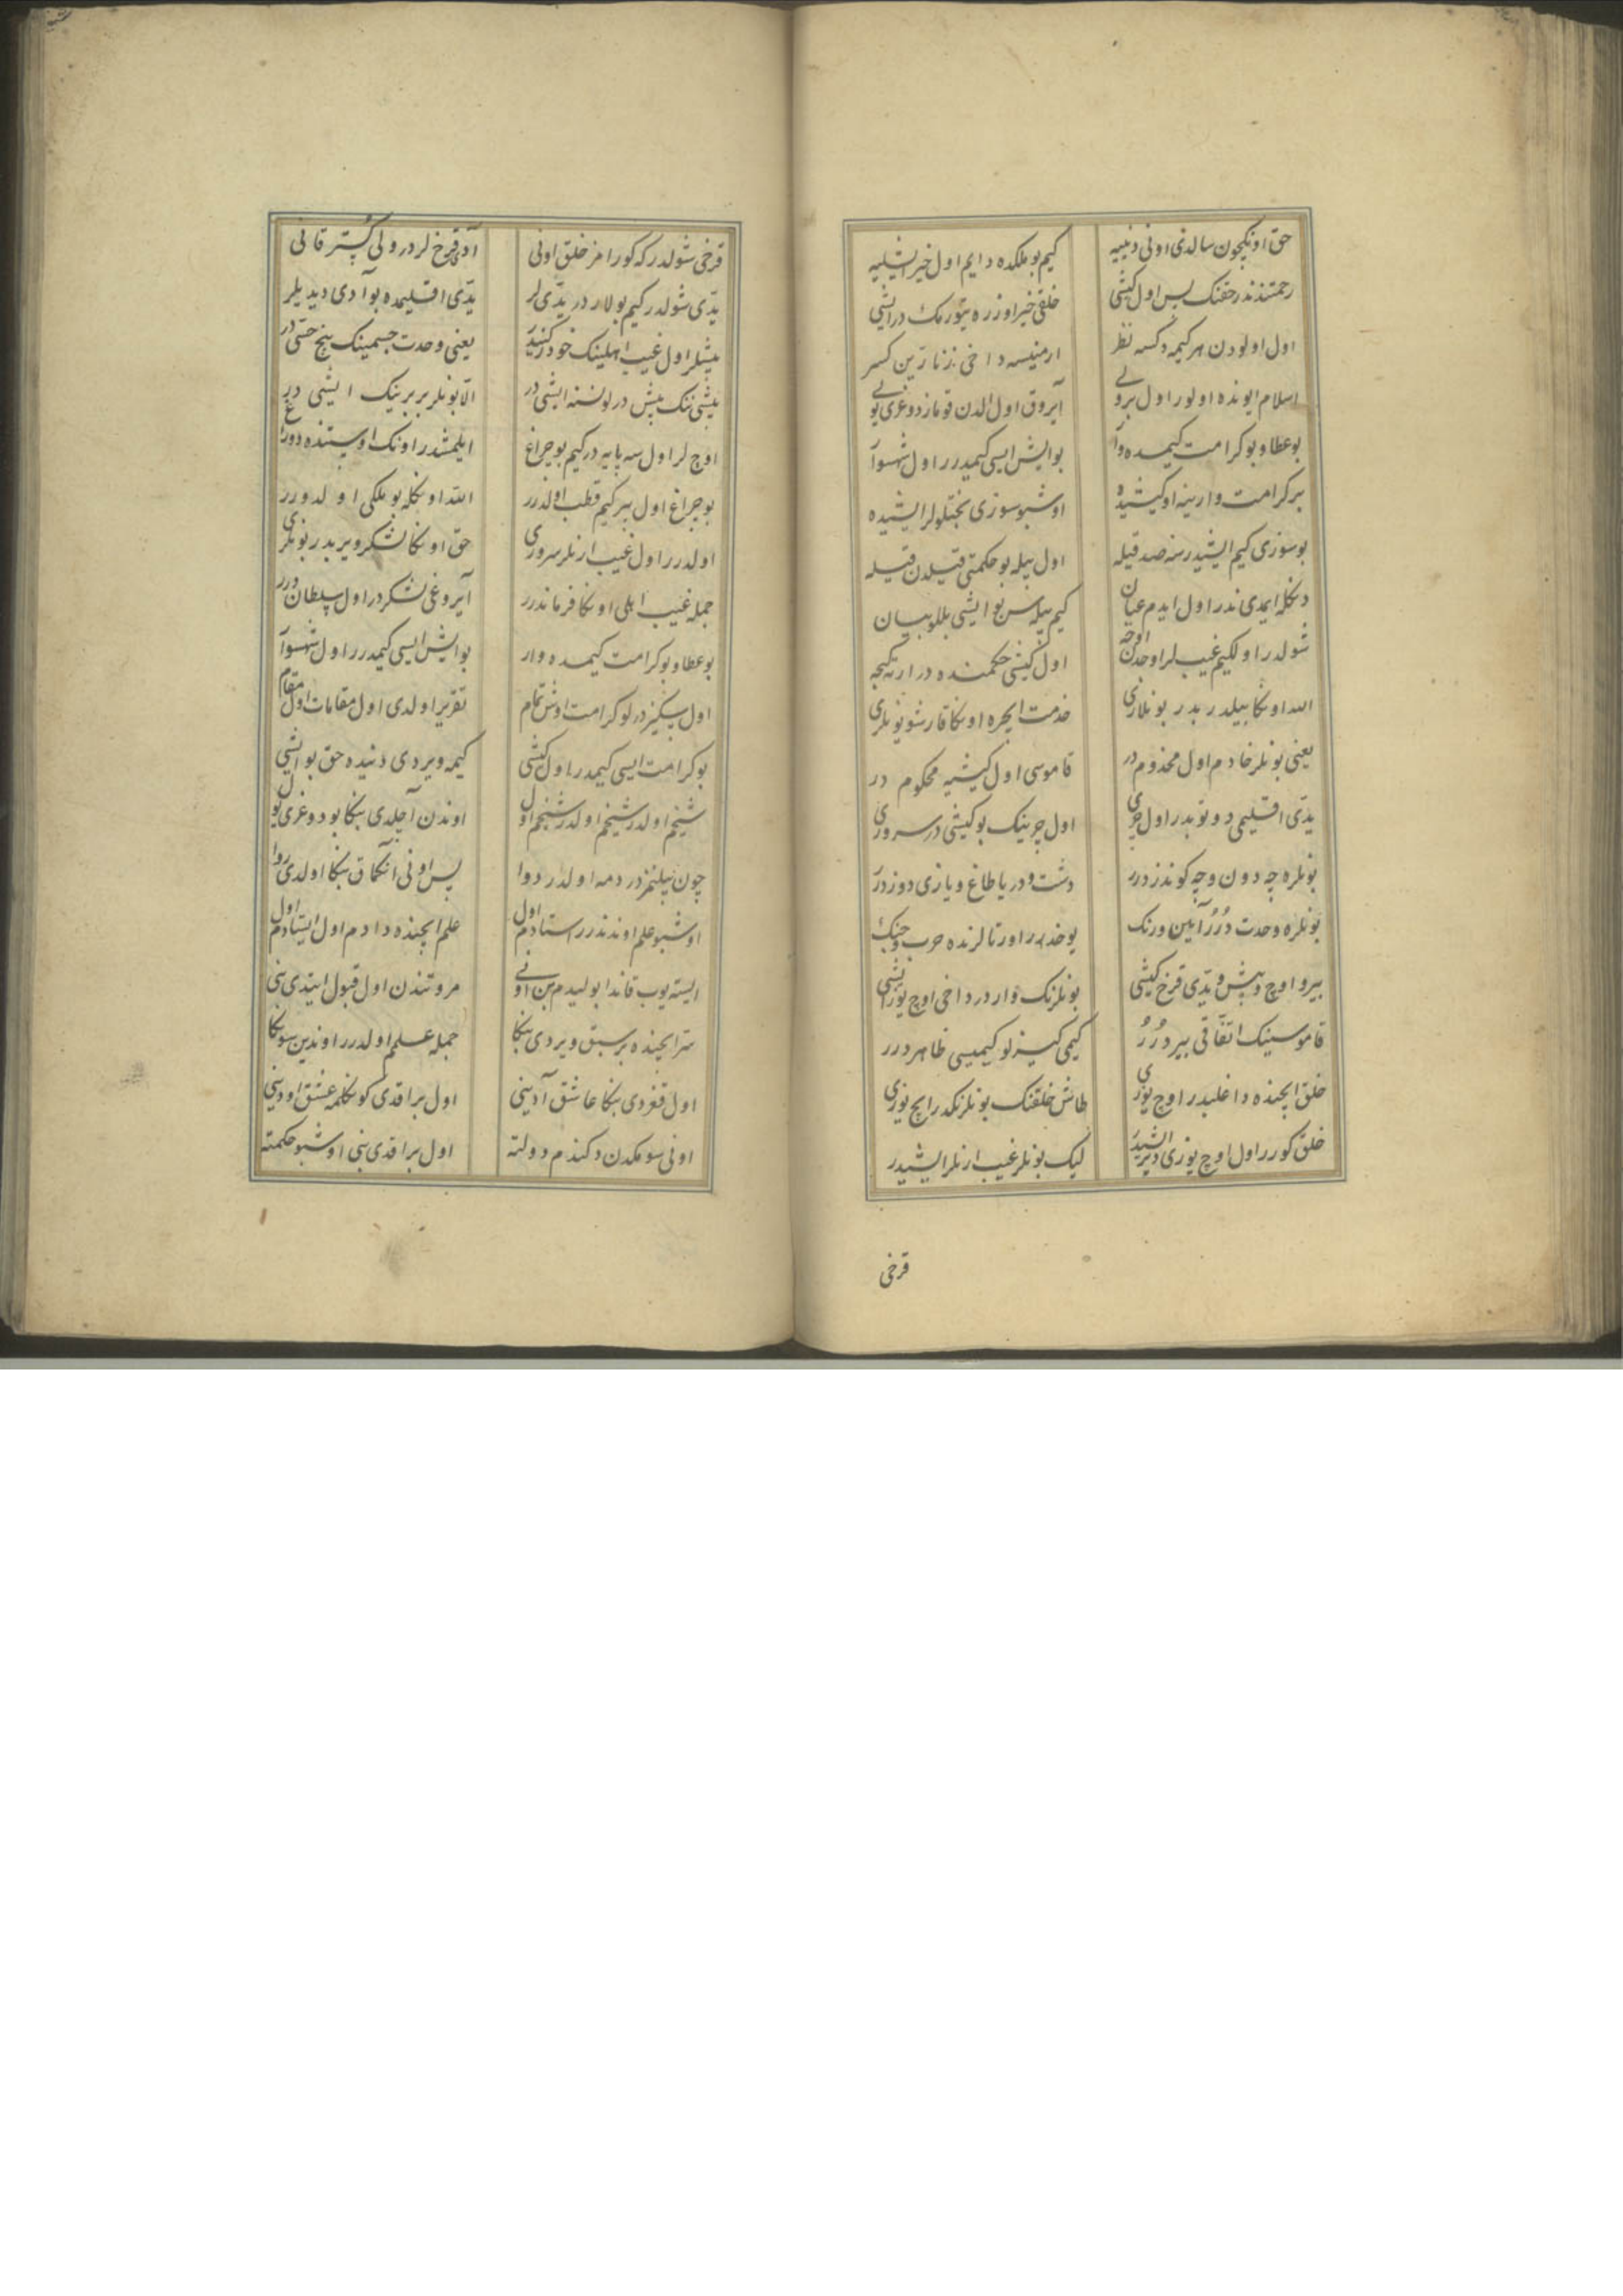 حق اونكچون سالدی اونی دنییه    كیم بو ملكده دایم اول خیر ایشلیه
رحمتندندر حقنك بس اول كیشی    خلقی خیر اوزره یتورمك در ایشی
اول اولودن هر كیمه دكسه نظر    ارمنیسه داخی زنارین كسر
اسلام ایونده اولور اول بروی    آیروق اول الدن قوماز دوغری یولی
بو عطا و بو كرامت كیمده وار    بو ایش ایسی كیمدرر اول شهسوار
بر كرامت وارینه او كیشیده    اوشبو سوزی بختلولر ایشیده
بو سوزی كیم ایشیدرسه صدقیله    اول بیله بو حكمتی قیلدن قیله
دنكله ایمدی ندر اول ایدم عیان    كیم بیله سن بو ایشی بللو بیان
شولدر اولكیم غیب لر اوجدن اوجه    اول كیشی حكمنده در ارته كیجه
الله اونكا بیلدربدر بونلاری    خدمت ایچره اونكا قارشو بونلری
یعنی بونلر خادم اول مخدوم در    قاموسی اول كیشیه محكوم در
یدّی اقلیمی دوتوبدر اول چری    اول چرینك بو كیشی در سروری
بونلره چه دون و چه كوندز درر    دشت و دریا طاغ و یازی دوز درر
بونلره وحدت دُرُر آیین و رنك    یوخدرر اورتالرنده حرب و جنك
بیر و اوچ و بیش و یدّی قرخ كیشی    بونلرنك واردر داخی اوچ یوز ایشی
قاموسینك اتّفاقی بیر دُرُر    كیمی كیزلو كیمیسی ظاهر درر
خلق ایچنده داغلیدر اوچ یوزی    طاش خلقنك بونلرنكدر ایچ یوزی
خلق كورر اول اوچ یوزی دیر ایشیدر    لیك بونلر غیب ارنلر ایشیدر
قرخی
قرخی شولدر كه كورامز خلق اونی    آدی قرخ لردر ولی كستر قانی
یدّی شولدر كیم بولاردر یدّی لر    یدّی اقلیمده بو آدی دیدیلر
بیشلر اول غیب اهلینك خود كنید    یعنی وحدت جسمینك پنج حسّی در
بیشی ننك بیش درلو نسنه ایشی در    الّا بونلر بربرینك ایشی در
اوچ لر اول سه پایه در كیم بو چراغ    ایلمشدر اونك اوستنده دوراغ
بو چراغ اول بیر كیم قطب اولدرر    الله اونكله بو ملكی اولدورر
اولدرر اول غیب ارنلر سروری    حق اونكا لشكر ویربدر بونلری
جمله غیب اهلی اونكا فرماندرر    آیروغی لشكردر اول سلطان درر
بو عطا و بو كرامت كیمده وار    بو ایش ایسی كیمدرر اول شهسوار
اول سكیز درلو كرامت اوش تمام    تقریر اولدی اول مقامات اول مقام
بو كرامت ایسی كیمدر اول كیشی    كیمه ویردی دنیده حق بو ایشی
شیخم اولدر شیخم اولدر شیخم اول    اوندن آچلدی بنكا بو دوغری یول
چون بیلنمز دردمه اولدر دوا    پس اونی آنكماق بنكا اولدی روا
اوشبو علم اوندندرر استادم اول    علم ایچنده دادم اول ایستادم اول
ایسته یوب قاندا بولیدم بن اونی    مروتندن اول قبول ایتدی بنی
سرّ ایچنده بر سبق ویردی بنكا    جمله علمم اولدرر اوندین سونكا
اول قغردی بنكا عاشق آدینی    اول براقدی كونكلمه عشق اودینی
اونی سومكدن دكندم دولته    اول براقدی بنی اوشبو حكمته